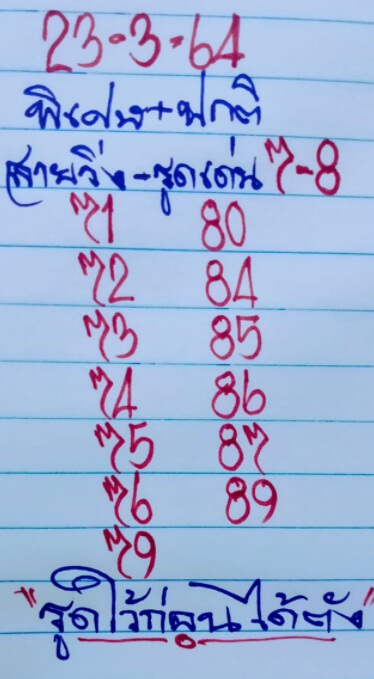 23-3-64
พิเศษ+ปกติ
สายวิ่ง-รูดเด่น 7-8
71 80
72 84
73 85
74 86
75 87
76 89
79
"รูดไว้ก่อนได้ตัง"